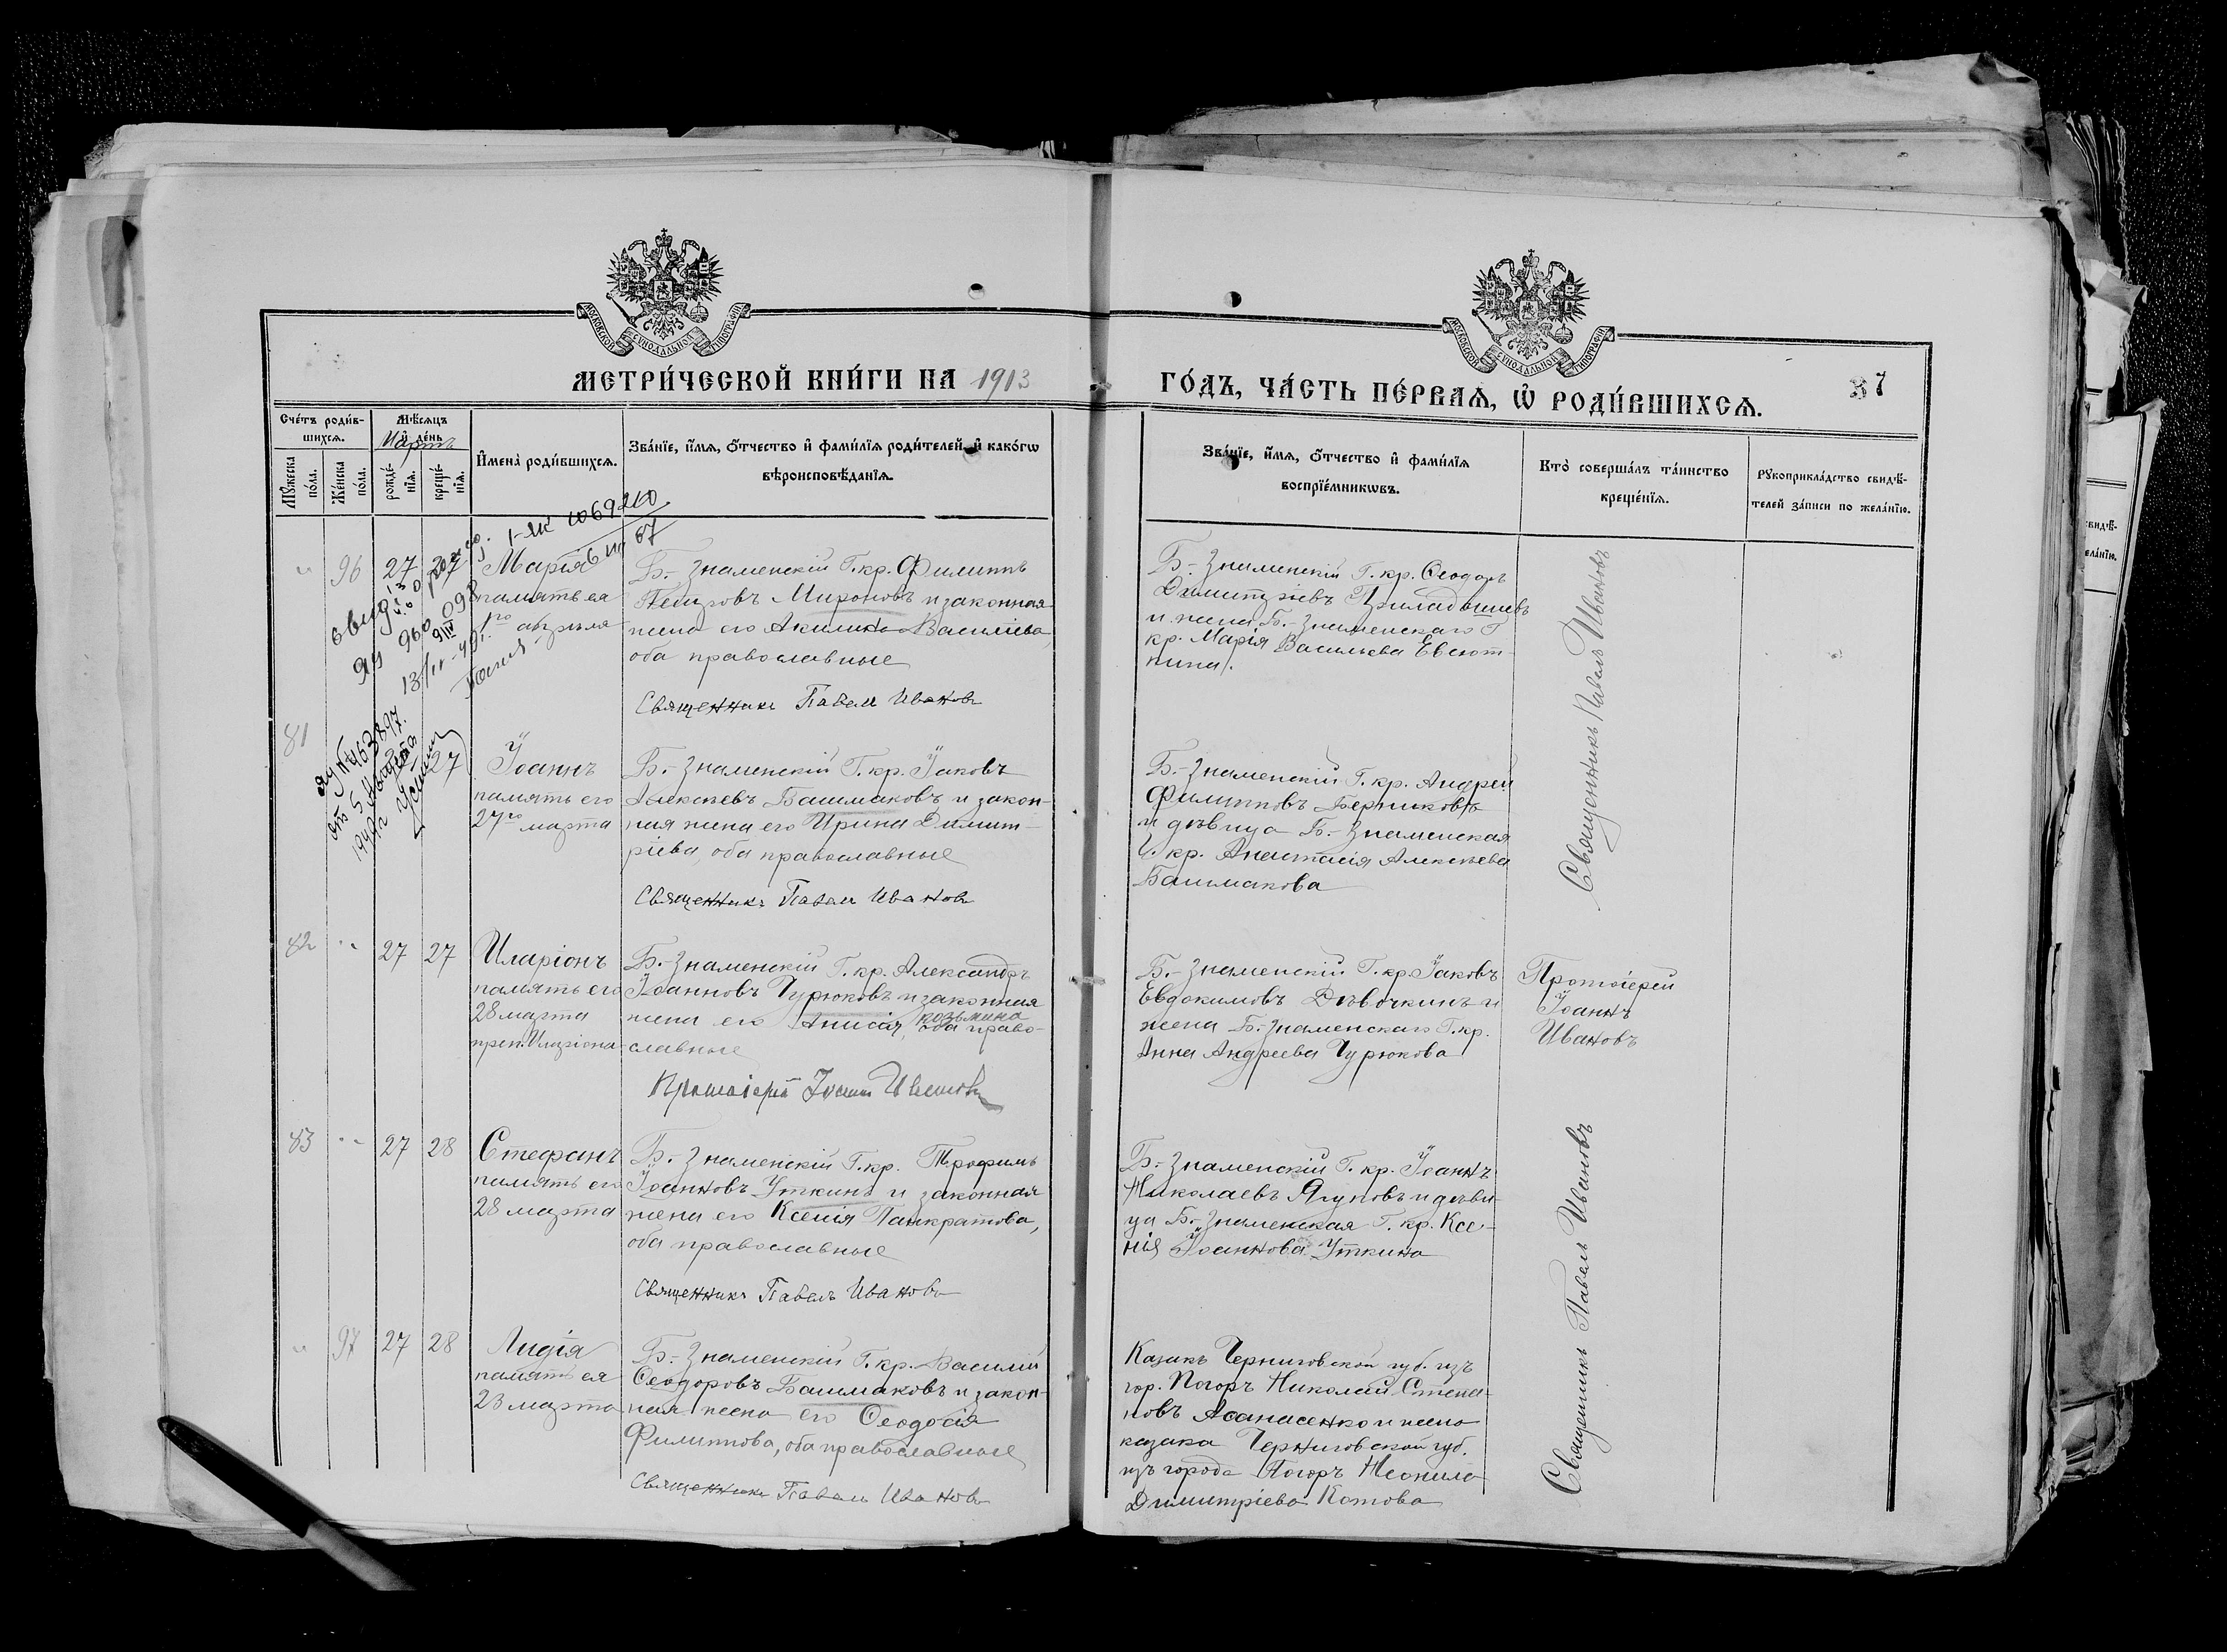 МОСКОВСКОЙ СѴНОДАЛЬНОЙ ТИПОГРАФІИ
МОСКОВСКОЙ СѴНОДАЛЬНОЙ ТИПОГРАФІИ
МЕТРИ́ЧЕСКОЙ КНИ́ГИ НА 1913
ГО́ДЪ, ЧА́СТЬ ПЕ́РВАѦ, Ѡ РОДИ́ВШИХСѦ.
37
Сче́тъ роди́в-
шихсѧ.
Мѣ́сѧцъ
и҆ де́нь
Мартъ
Мꙋ́жеска
по́ла.
Же́нска
по́ла.
рожде́-
нїѧ.
креще́-
нїѧ.
И҆мена̀ роди́вшихсѧ.
Зва́нїе, и҆́мѧ, о҆́тчество и҆ фами́лїѧ роди́телей, и҆ како́гѡ
вѣроисповѣ́данїѧ.
Зва́нїе, и҆́мѧ, о҆́тчество и҆ фами́лїѧ
воспрїе́мникѡвъ.
Кто̀ соверша́лъ та́инство
креще́нїѧ.
Рꙋкоприкла́дство свидѣ́-
телей за́писи по жела́нїю.
96 27 27 Марія
память ея
1го апрѣля
Б.-Знаменскій Г. кр. Филиппъ
Петровъ Мироновъ и законная
жена его Акилина Василіева,
оба православные
Священникъ Павелъ Ивановъ
Б.-Знаменскій Г. кр. Ѳеодоръ
Димитріевъ
и жена Б.-Знаменскаго Г
кр. Марія Васильева Евсют-
кина.
Священникъ Павелъ Ивановъ
81 27 Іоаннъ
память его
27го марта
Б.-Знаменскій Г. кр. Іаковъ
Алексѣевъ Башмаковъ и закон-
ная жена его Ирина Димит-
ріева, оба православные
Священникъ Павелъ Ивановъ
Б.-Знаменскій Г. кр. Андрей
Филипповъ Берниковъ
и дѣвица Б.-Знаменская
Г. кр. Анастасія Алексѣева
Башмакова
82 27 27 Иларіонъ
память его
28 марта
преп. Иларіона
Б.-Знаменскій Г. кр. Александръ
Іоанновъ Чурюковъ и законная
жена его Анисія Козьмина, оба право-
славные
Протоіерей Іоаннъ Ивановъ
Б.-Знаменскій Г. кр. Іаковъ
Евдокимовъ Дѣвочкинъ и
жена Б.-Знаменскаго Г. кр.
Анна Андреева Чурюкова
Протоіерей
Іоаннъ
Ивановъ
83 27 28 Стефанъ
память его
28 марта
Б.-Знаменскій Г. кр. Трофимъ
Іоанновъ Уткинъ и законная
жена его Ксенія Панкратова,
оба православные
Священникъ Павелъ Ивановъ
Б.-Знаменскій Г. кр. Іоаннъ
Николаевъ Ягуповъ и дѣви-
ца Б.-Знаменская Г. кр. Ксе-
нія Іоаннова Уткина
Священникъ Павелъ Ивановъ
97 27 28 Лидія
память ея
23 марта
Б.-Знаменскій Г. кр. Василій
Ѳеодоровъ Башмаковъ и закон-
ная жена его Ѳеодосія
Филиппова, оба православные
Священникъ Павелъ Ивановъ
Казакъ Черниговской губ. изъ
гор. Погоръ Николай Степа-
новъ Аѳанасенко и жена
казака Черниговской губ.
изъ города Погоръ Неонила
Димитріева Котова